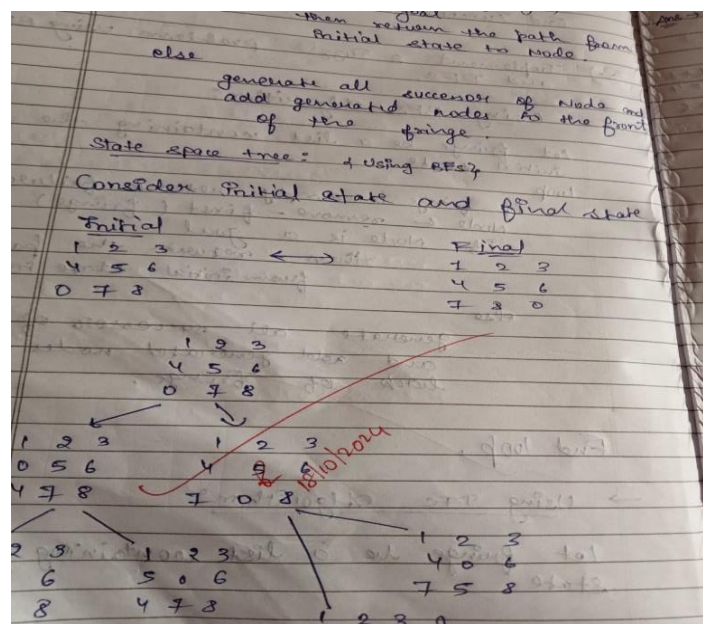 goal
then return the path from
Initial state to Node.
else
generate all successor of Node and
add generated nodes to the front
of the fringe.
State space tree:- { Using BFS }
Consider initial state and final state
Initial Final
1 2 3 1 2 3
4 5 6 4 5 6
0 7 8 7 8 0
1 2 3
4 5 6
0 7 8
1 2 3 1 2 3
0 5 6 4 5 6
4 7 8 7 0 8
18/10/2024
2 3 1 2 3 1 2 3
6 5 0 6 4 0 6
8 4 7 8 7 5 8
1 2 3
Ans →